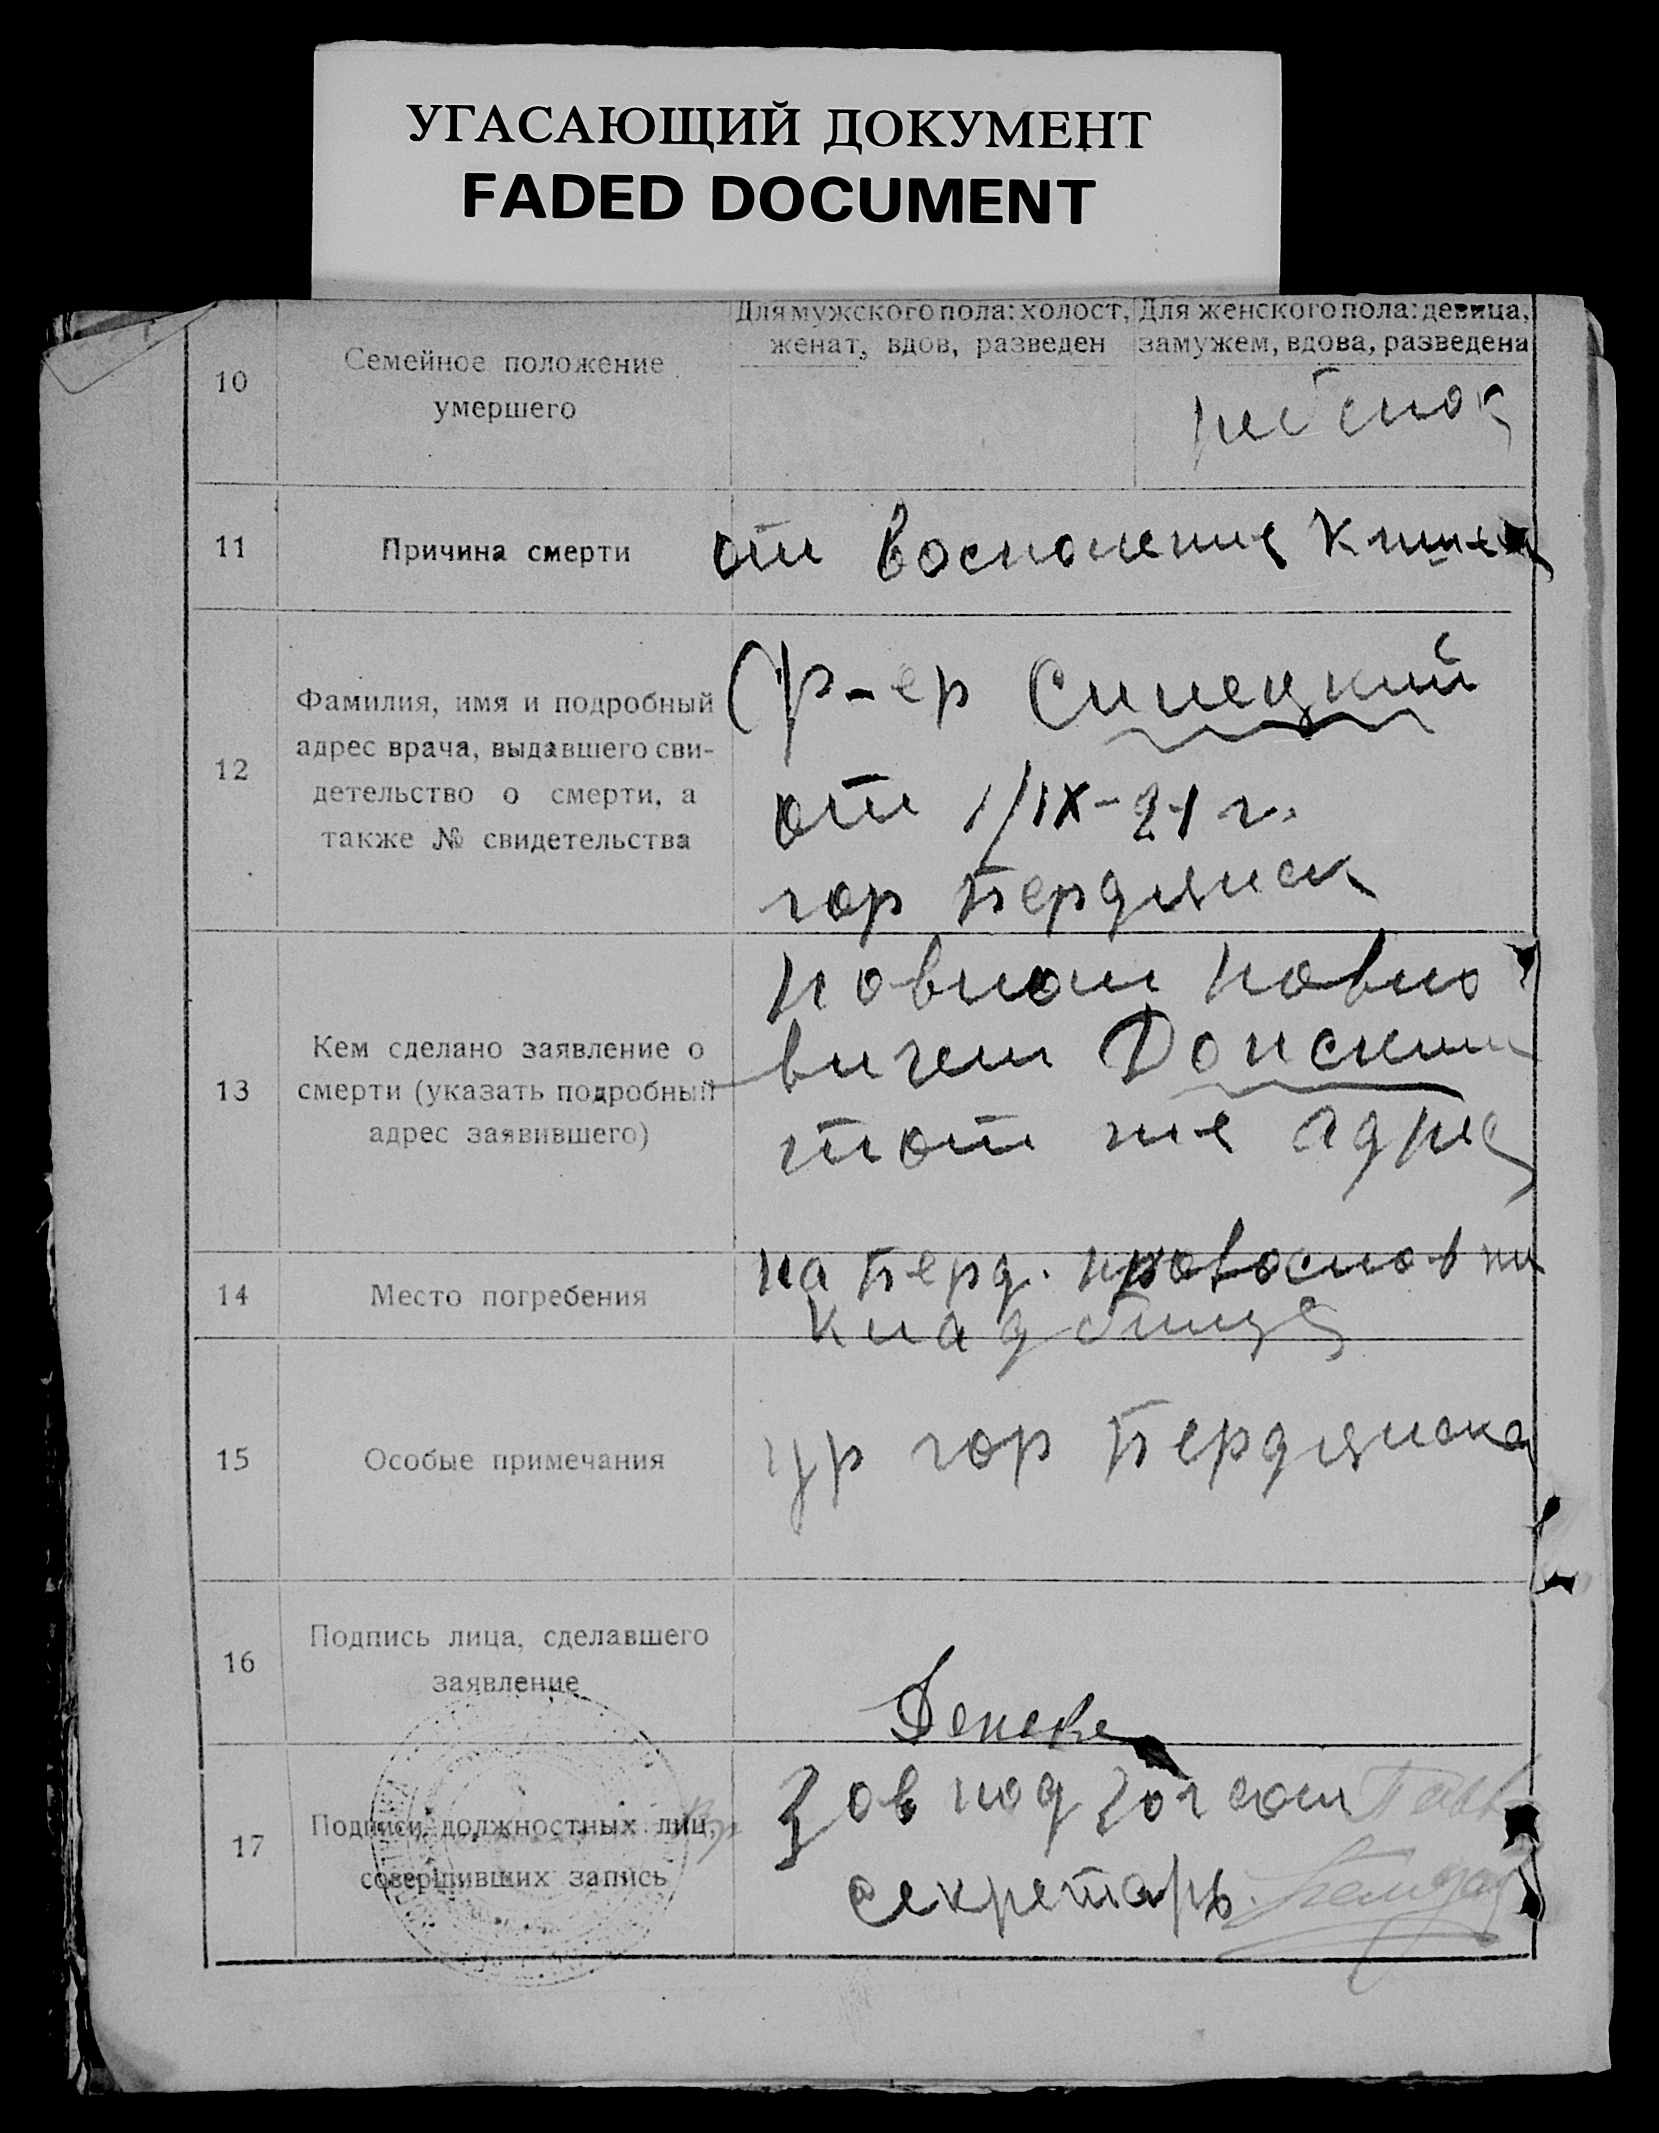 УГАСАЮЩИЙ ДОКУМЕНТ
FADED DOCUMENT
10
Семейное положение
умершего
Для мужского пола: холост,
женат, вдов, разведен
Для женского пола: девица,
замужем, вдова, разведена
ребенок
11
Причина смерти
от восполения кишек
12
Фамилия, имя и подробный
адрес врача, выдавшего сви-
детельство о смерти, а
также № свидетельства
Ф-ер Синецкий
от 1/IX-21 г.
гор Бердянск
13
Кем сделано заявление о
смерти (указать подробный
адрес заявившего)
Павлом Павло
вичем Донским
тот же адрес
14
Место погребения
на Берд. провославн
кладбище
15
Особые примечания
ур гор Бердянска
16
Подпись лица, сделавшего
заявление
17
Подписи должностных лиц,
совершивших запись
Зав под загсом
секретарь